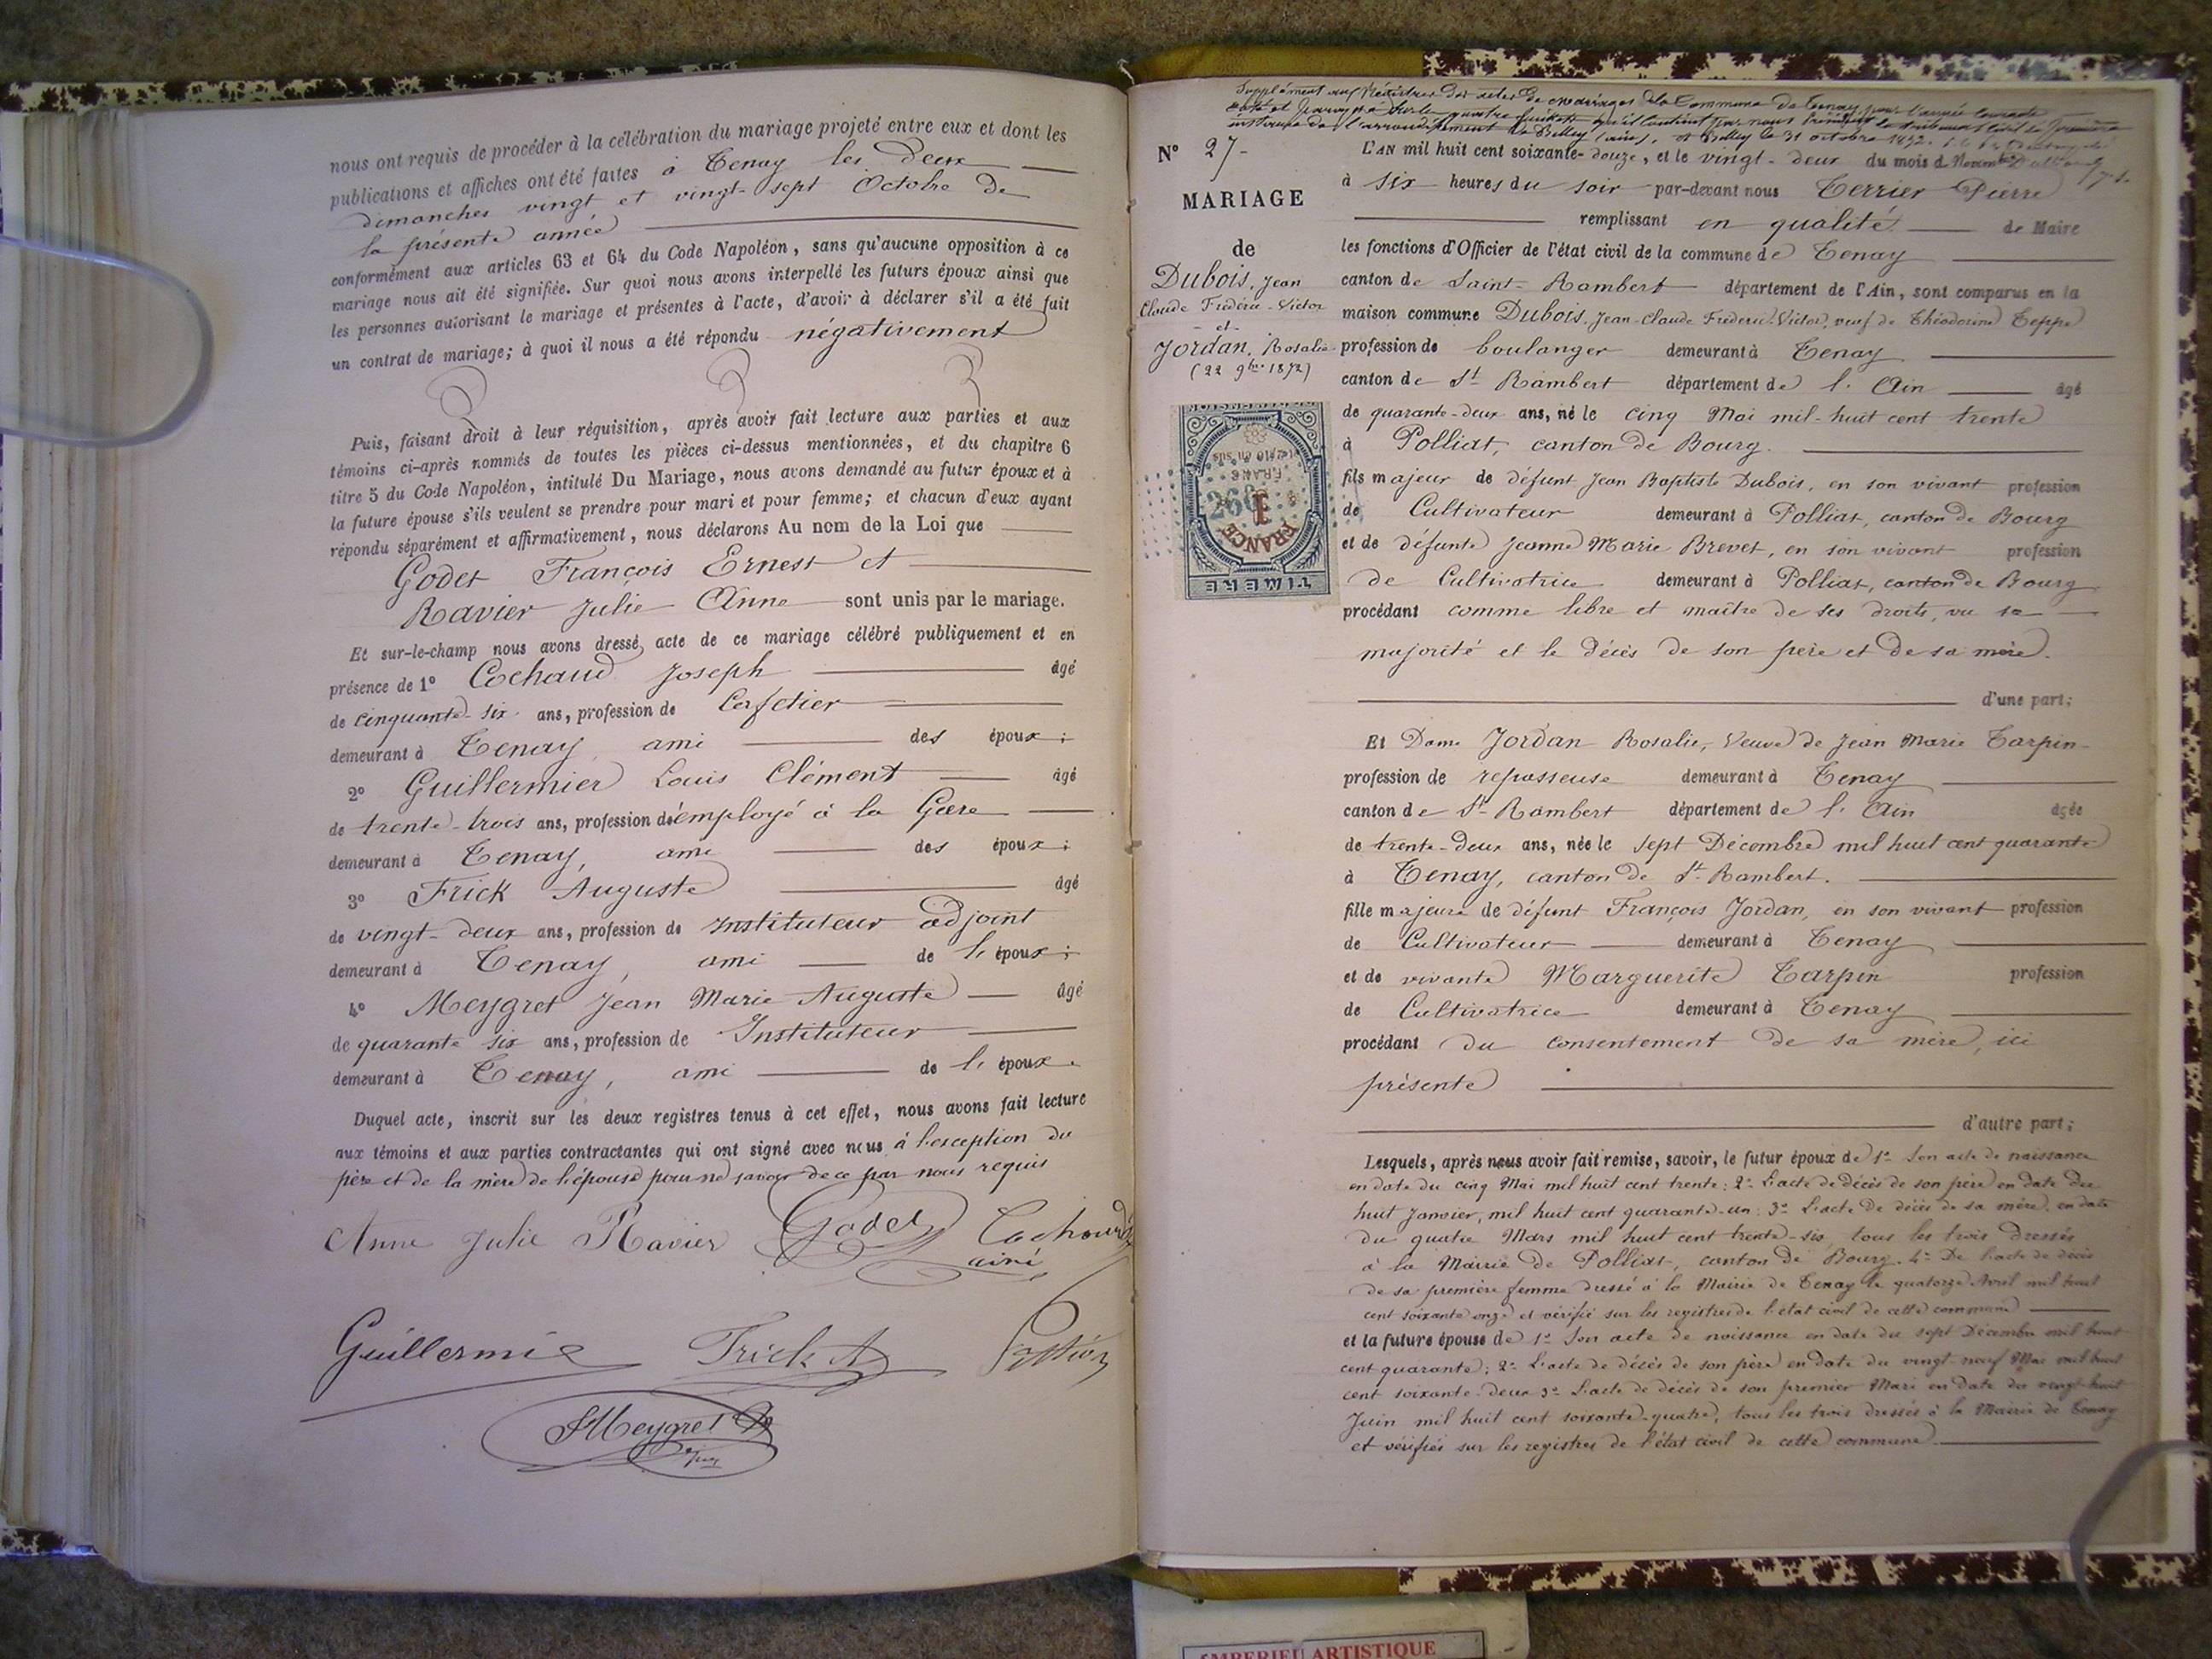 nous ont requis de procéder à la célébration du mariage projeté entre eux et dont les
publications et affiches ont été faites à Tenay les deux
dimanches vingt et vingt-sept Octobre de
la présente année
conformément aux articles 63 et 64 du Code Napoléon, sans qu'aucune opposition à ce
mariage nous ait été signifiée. Sur quoi nous avons interpellé les futurs époux ainsi que
les personnes autorisant le mariage et présentes à l'acte, d'avoir à déclarer s'il a été fait
un contrat de mariage; à quoi il nous a été répondu négativement
Puis, faisant droit à leur réquisition, après avoir fait lecture aux parties et aux
témoins ci-après nommés de toutes les pièces ci-dessus mentionnées, et du chapitre 6
titre 5 du Code Napoléon, intitulé Du Mariage, nous avons demandé au futur époux et à
la future épouse s'ils veulent se prendre pour mari et pour femme; et chacun d'eux ayant
répondu séparément et affirmativement, nous déclarons Au nom de la Loi que
Godet François Ernest et
Ravier Julie Anne sont unis par le mariage.
Et sur-le-champ nous avons dressé acte de ce mariage célébré publiquement et en
présence de 1º Cochaud Joseph âgé
de cinquante-six ans, profession de Cafetier
demeurant à Tenay ami des époux;
2º Guillermier Louis Clément âgé
de trente-trois ans, profession d'employé à la Gare
demeurant à Tenay, ami des époux;
3º Frick Auguste âgé
de vingt-deux ans, profession de Instituteur adjoint
demeurant à Tenay, ami de l'époux;
4º Meygret Jean Marie Auguste âgé
de quarante six ans, profession de Instituteur
demeurant à Tenay, ami de l'époux.
Duquel acte, inscrit sur les deux registres tenus à cet effet, nous avons fait lecture
aux témoins et aux parties contractantes qui ont signé avec nous à l'exception du
père et de la mère de l'épouse pour ne savoir de ce par nous requis
Anne Julie Ravier Godet Cochaud
ainé
Guillermie Frick A
Meygret
Supplément aux Registres des actes de mariages de la Commune de Tenay pour l'année courante
coté et paraphé sur les quatre feuillets qu'il contient par nous Président du tribunal civil de première
instance de l'arrondissement de Belley (ain). A Belley le 31 octobre 1872.
Nº 27-
MARIAGE
de
Dubois, Jean
Claude Fréderic-Victor
et
Jordan, Rosalie
(22 9bre 1872)
TIMBRE
FRANCE
1
FRANC
2/10 en sus
266
L'AN mil huit cent soixante-douze, et le vingt-deux du mois de Novembre
à six heures du soir par-devant nous Terrier Pierre
remplissant en qualité de Maire
les fonctions d'Officier de l'état civil de la commune de Tenay
canton de Saint-Rambert département de l'Ain, sont comparus en la
maison commune Dubois, Jean-Claude Fréderic-Victor, veuf de Théodorine Teppe
profession de boulanger demeurant à Tenay
canton de St Rambert département de l'Ain âgé
de quarante-deux ans, né le cinq Mai mil-huit cent trente
à Polliat, canton de Bourg.
fils majeur de défunt Jean Baptiste Dubois, en son vivant profession
de Cultivateur demeurant à Polliat, canton de Bourg
et de défunte Jeanne Marie Brevet, en son vivant profession
de Cultivatrice demeurant à Polliat, canton de Bourg
procédant comme libre et maître de ses droits, vu sa
majorité et le décès de son père et de sa mère.
d'une part;
Et Dame Jordan Rosalie, Veuve de Jean Marie Tarpin
profession de repasseuse demeurant à Tenay
canton de St-Rambert département de l'Ain âgée
de trente-deux ans, née le sept Décembre mil huit cent quarante
à Tenay, canton de St Rambert.
fille majeure de défunt François Jordan, en son vivant profession
de Cultivateur demeurant à Tenay
et de vivante Marguerite Tarpin profession
de Cultivatrice demeurant à Tenay
procédant du consentement de sa mère, ici
présente
d'autre part;
Lesquels, après nous avoir fait remise, savoir, le futur époux de 1º Son acte de naissance
en date du cinq Mai mil huit cent trente; 2º L'acte de décès de son père en date du
huit Janvier, mil huit cent quarante-un; 3º L'acte de décès de sa mère, en date
du quatre Mars mil huit cent trente-six, tous les trois dressés
à la Mairie de Polliat, canton de Bourg. 4º De l'acte de décès
de sa première femme dressé à la Mairie de Tenay le quatorze Avril mil huit
cent soixante onze et vérifié sur les registres de l'état civil de cette commune
et la future épouse de 1º Son acte de naissance en date du sept Décembre mil huit
cent quarante; 2º L'acte de décès de son père en date du vingt-neuf Mai mil huit
cent soixante-deux 3º L'acte de décès de son premier Mari en date du vingt-huit
Juin mil huit cent soixante-quatre, tous les trois dressés à la Mairie de Tenay
et vérifiés sur les registres de l'état civil de cette commune.
AMBERIEU ARTISTIQUE